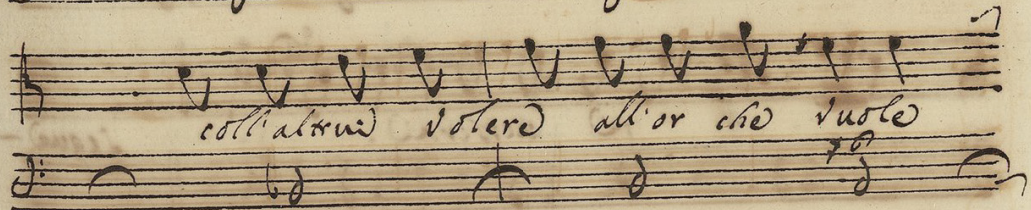 coll'altrui volere all'or che vuole
6